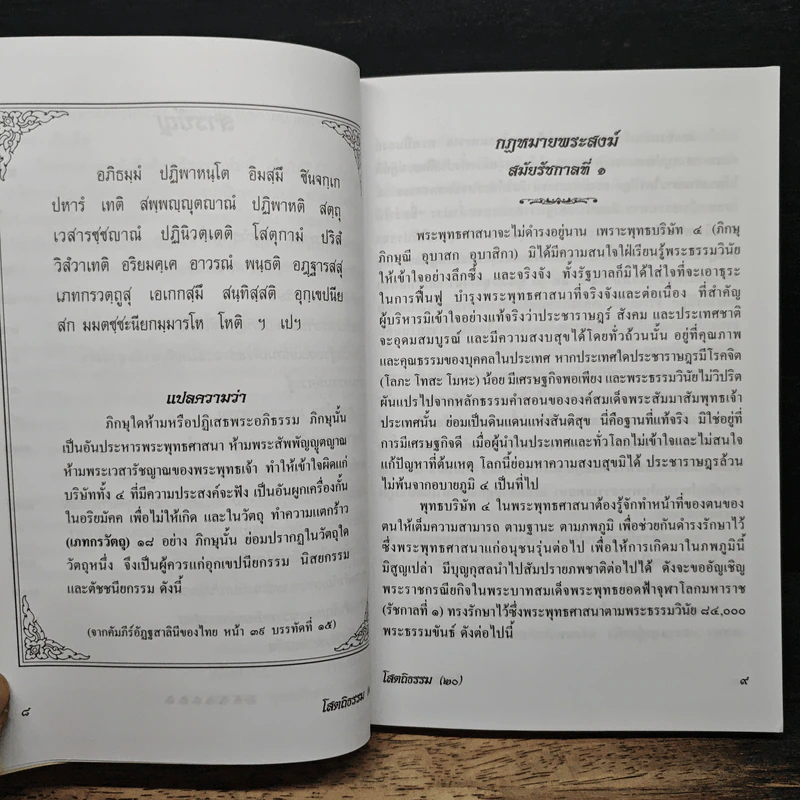 อภิธมฺมํ ปฏิพาหนฺโต อิมสฺมึ ชินจกฺเก
ปหารํ เทติ สพฺพญฺญุตญาณํ ปฏิพาหติ สตฺถุ
เวสารชฺชญาณํ ปฏินิวตฺเตติ โสตุกามํ ปริสํ
วิสํวาเทติ อริยมคฺเค อาวรณํ พนฺธติ อฏฺฐารสสุ
เภทกรวตฺถูสุ เอเกกสฺมึ สนฺทิสฺสติ อุกฺเขปนีย
โหติ ฯ เปฯ
แปลความว่า
ภิกษุใดห้ามหรือปฏิเสธพระอภิธรรม ภิกษุนั้น
เป็นอันประหารพระพุทธศาสนา ห้ามพระสัพพัญญุตญาณ
ห้ามพระเวสารัชญาณของพระพุทธเจ้า ทำให้เข้าใจผิดแก่
บริษัททั้ง ๔ ที่มีความประสงค์จะฟัง เป็นอันผูกเครื่องกั้น
ในอริยมัคค เพื่อไม่ให้เกิด และในวัตถุ ทำความแตกร้าว
(เภทกรวัตถุ) ๑๘ อย่าง ภิกษุนั้น ย่อมปรากฏในวัตถุใด
วัตถุหนึ่ง จึงเป็นผู้ควรแก่อุกเขปนียกรรม นิสยกรรม
และตัชชนียกรรม ดังนี้
(จากคัมภีร์อัฏฐสาลินีของไทย หน้า ๓๙ บรรทัดที่ ๑๕)
๘
โสตถิธรรม
กฎหมายพระสงฆ์
สมัยรัชกาลที่ ๑
พระพุทธศาสนาจะไม่ดำรงอยู่นาน เพราะพุทธบริษัท ๔ (ภิกษุ
ภิกษุณี อุบาสก อุบาสิกา) มิได้มีความสนใจใฝ่เรียนรู้พระธรรมวินัย
ให้เข้าใจอย่างลึกซึ้ง และจริงจัง ทั้งรัฐบาลก็มิได้ใส่ใจที่จะเอาธุระ
ในการฟื้นฟู บำรุงพระพุทธศาสนาที่จริงจังและต่อเนื่อง ที่สำคัญ
ผู้บริหารมิเข้าใจอย่างแท้จริงว่าประชาราษฎร์ สังคม และประเทศชาติ
จะอุดมสมบูรณ์ และมีความสงบสุขได้โดยทั่วถ้วนนั้น อยู่ที่คุณภาพ
และคุณธรรมของบุคคลในประเทศ หากประเทศใดประชาราษฎรมีโรคจิต
(โลภะ โทสะ โมหะ) น้อย มีเศรษฐกิจพอเพียง และพระธรรมวินัยไม่วิปริต
ผันแปรไปจากหลักธรรมคำสอนขององค์สมเด็จพระสัมมาสัมพุทธเจ้า
ประเทศนั้น ย่อมเป็นดินแดนแห่งสันติสุข นี่คือฐานที่แท้จริง มิใช่อยู่ที่
การมีเศรษฐกิจดี เมื่อผู้นำในประเทศและทั่วโลกไม่เข้าใจและไม่สนใจ
แก้ปัญหาที่ต้นเหตุ โลกนี้ย่อมหาความสงบสุขมิได้ ประชาราษฎรล้วน
ไม่พ้นจากอบายภูมิ ๔ เป็นที่ไป
พุทธบริษัท ๔ ในพระพุทธศาสนาต้องรู้จักทำหน้าที่ของตนของ
ตนให้เต็มความสามารถ ตามฐานะ ตามภพภูมิ เพื่อช่วยกันดำรงรักษาไว้
ซึ่งพระพุทธศาสนาแก่อนุชนรุ่นต่อไป เพื่อให้การเกิดมาในภพภูมินี้
มิสูญเปล่า มีบุญกุสลนำไปสัมปรายภพชาติต่อไปได้ ดังจะขออัญเชิญ
พระราชกรณียกิจในพระบาทสมเด็จพระพุทธยอดฟ้าจุฬาโลกมหาราช
(รัชกาลที่ ๑) ทรงรักษาไว้ซึ่งพระพุทธศาสนาตามพระธรรมวินัย ๘๔,๐๐๐
พระธรรมขันธ์ ดังต่อไปนี้
โสตถิธรรม (๒๐)
๙